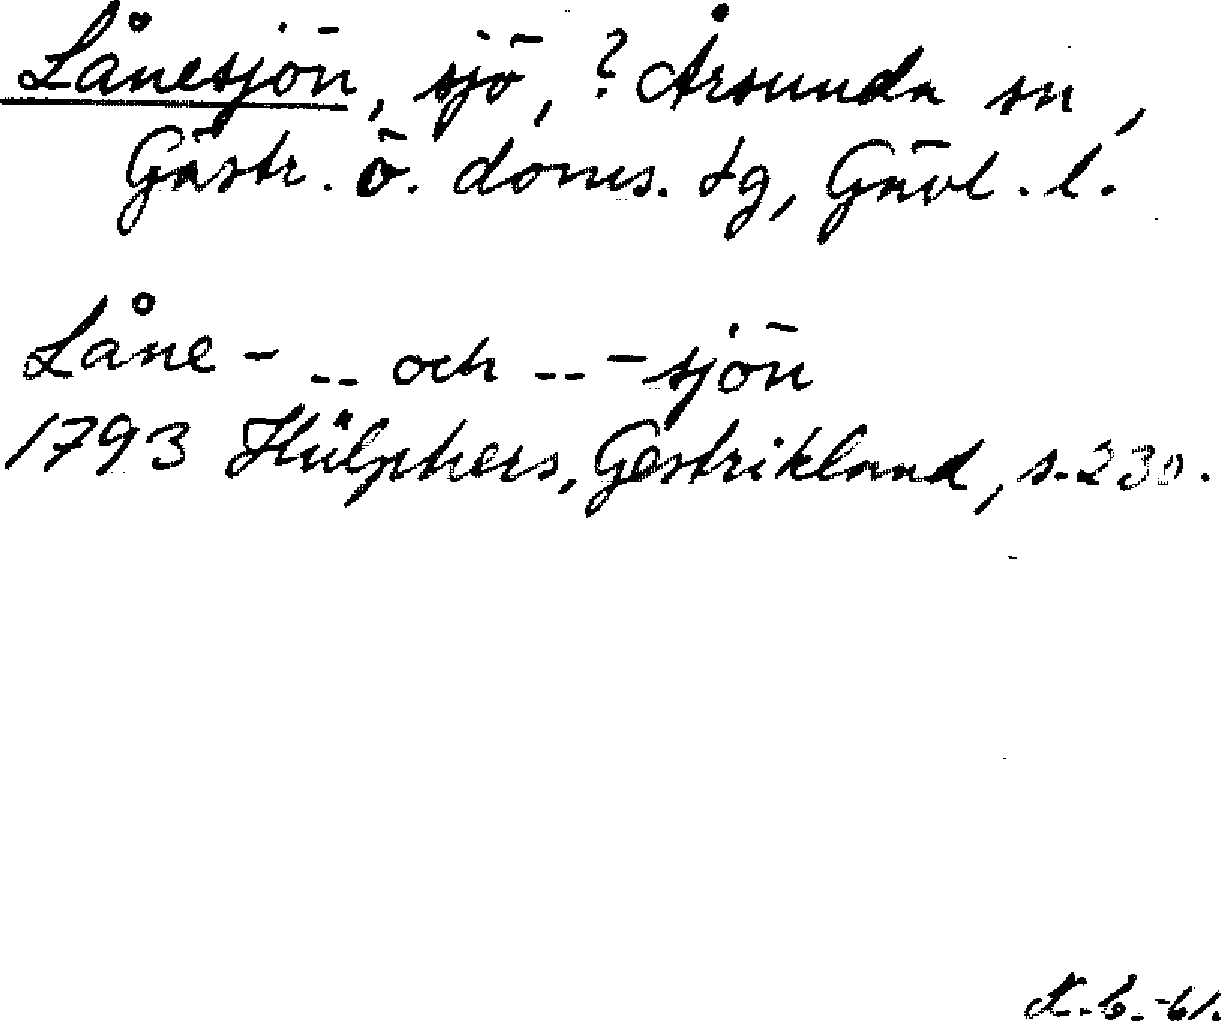 Lånesjön, sjö, ? Årsunda sn,
Gästr. ö. doms. tg, Gävl. l.
Låne- -- och -- -sjön
1793 Hülphers, Gestrikland, s. 230.
-61.